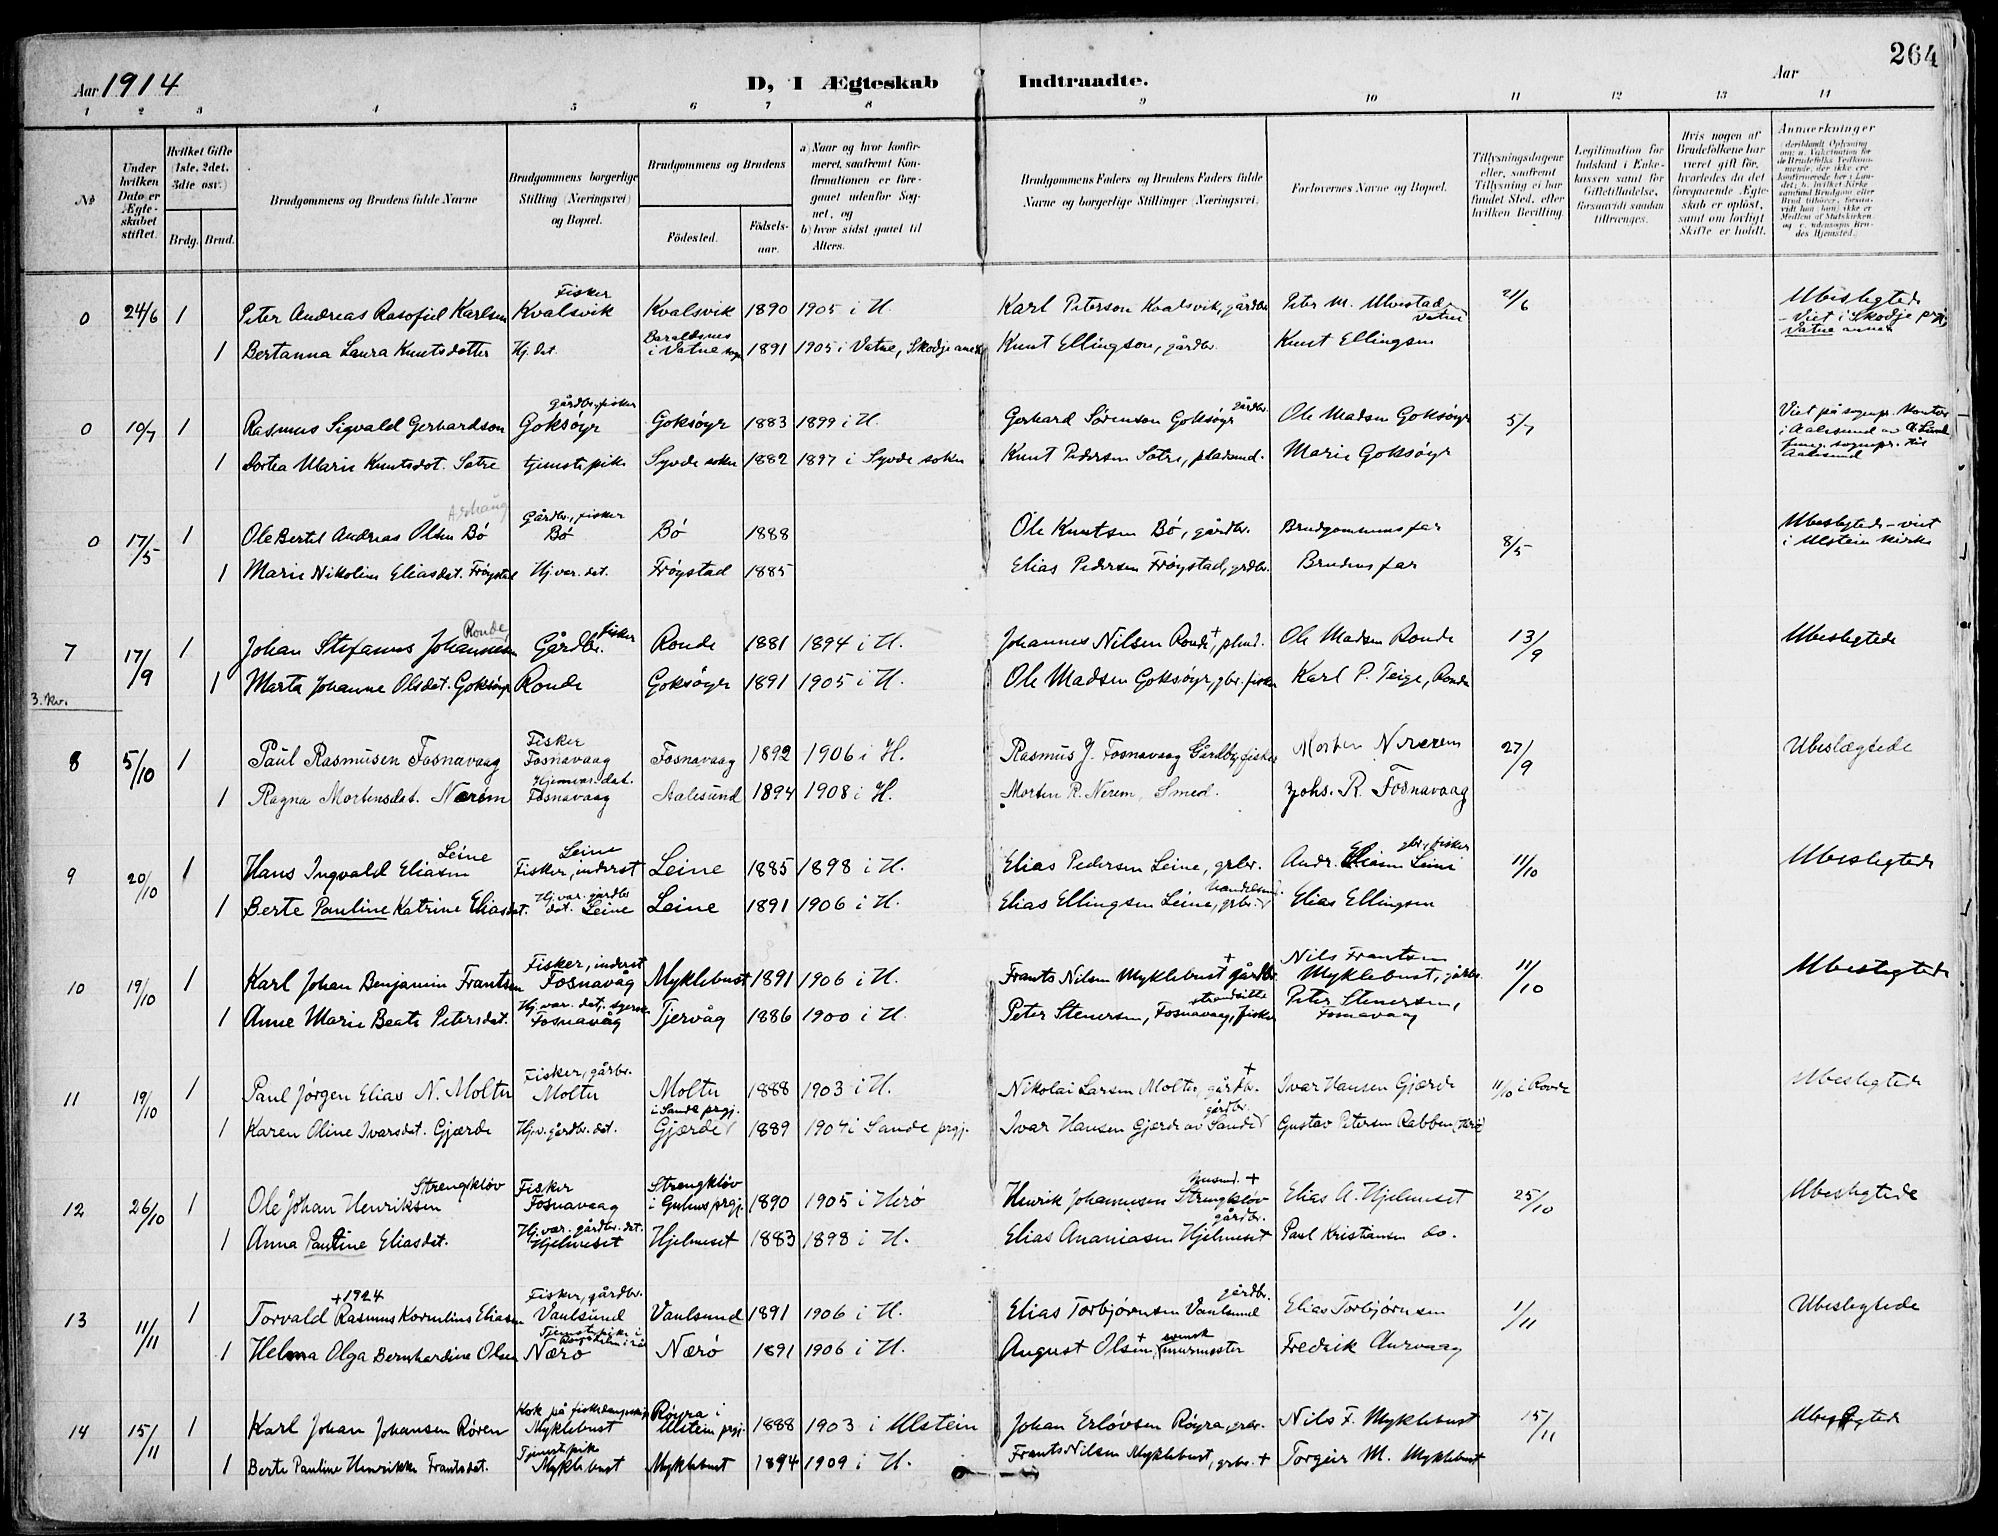 264
Aar 1914 D, I Ægteskab Indtraadte. Aar
1 2 3 4 5 6 7 8 9 10 11 12 13 14
No
Under hvilken Dato er Ægteskabet stiftet.
Hvilket Gifte (1ste, 2det, 3die osv.)
Brdg. Brud.
Brudgommens og Brudens fulde Navne
Brudgommens borgerlige Stilling (Næringsvei) og Bopæl.
Brudgommens og Brudens
Fødested.
Fødselsaar.
a) Naar og hvor konfirmeret, saafremt Konfirmationen er foregaaet udenfor Sognet, og
b) hvor sidst gaaet til Alters.
Brudgommens Faders og Brudens Faders fulde Navne og borgerlige Stillinger (Næringsvei).
Forlovernes Navne og Bopæl.
Tillysningsdagene eller, saafremt Tillysning ei har fundet Sted, efter hvilken Bevilling.
Legitimation for Indskud i Enkekassen samt for Giftetilladelse, forsaavidt saadan tiltrænges.
Hvis nogen af Brudefolkene har været gift før, hvorledes da det foregaaende Ægteskab er opløst, samt om lovligt Skifte er holdt.
Anmærkninger
0 24/6 1 Peter Andreas Rasofiel Karlsen Fisker Kvalsvik Kvalsvik 1890 1905 i H. Karl Peterson Kvalsvik, gårdbr. Peter M. Ulvestad, Vatne 21/6 Ubeslegtede - Viet i Skodje prgj. Vatne annex
1 Bertanna Laura Knutsdotter Hj. dat. Baraldsnes i Vatne sogn 1891 1905 i Vatne, Skodje annex Knut Ellingson, gårdbr. Knut Ellingsen
0 10/7 1 Rasmus Sigvald Gerhardson gårdbr, fisker Goksöyr Goksöyr 1883 1899 i H. Gerhard Sørenson Goksöyr gårdbr. Ole Madsen Goksöyr 5/7 Viet på sogepr. kontor i Aalesund
1 Dortea Marie Knutsdat. Satre tjenestepike Syvde sokn 1882 1897 i Syvde sokn Knut Pedersen Satre, pladsmd. Marie Goksöyr
0 17/5 1 Ole Bertel Andreas Olsen Bö Gårdbr, fisker Bö Bö 1888 Ole Knutsen Bö, gårdbr. Brudgommens far 8/5 Ubeslegtede - viet i Ulstein kirke
1 Marie Nikoline Eliasdat. Fröystad Hj. var. dat. Fröystad 1885 Elias Pedersen Fröystad, grdbr. Brudens far
7 17/9 1 Johan Stefanus Johannesen Ronde Gårdbr. fisker Ronde 1881 1894 i H. Johannes Nilsen Ronde +, plmd. Ole Madsen Ronde 13/9 Ubeslegtede
1 Marta Johanne Olsdat. Goksöyr Ronde Goksöyr 1891 1905 i H. Ole Madsen Goksöyr, gbr. fisker Karl P. Teige, Ronde
3. kv.
8 5/10 1 Paul Rasmusen Fosnavaag Fisker Fosnavaag Fosnavaag 1892 1906 i H. Rasmus J. Fosnavaag Gårdbr, fisker Morten Nerem 27/9 Ubeslægtede
1 Ragna Mortensdat. Nærem Hjemvar. dat. Fosnavaag Aalesund 1894 1908 i H. Morten R. Nerem, Smed. Johs. R. Fosnavaag
9 20/10 1 Hans Ingvald Eliasen Leine Leine Fisker, inderst Leine 1885 1898 i H. Elias Pedersen Leine, grbr. Andr. Eliasen Leine gbr, fisker 11/10 Ubeslegtede
1 Berte Pauline Katrine Eliasdat. Hj. var. gårdbr. dat. Leine Leine 1891 1906 i H. Elias Ellingsen Leine, grbr. handelsmd. Elias Ellingsen
10 19/10 1 Karl Johan Benjamin Frantsen Fisker, inderst Fosnavåg Myklebust 1891 1906 i H. Frants Nilsen Myklebust + gårdbr. Nils Frantsen Myklebust, gårbr. 11/10 Ubeslegtede
1 Anne Marie Beate Petersdat. Hj. var. dat, syerske Fosnavåg Tjervåg 1886 1900 i H. Peter Stenersen, Fosnavaag, strandsitte fisker Peter Stenersen, Fosnavaag
11 19/10 1 Paul Jörgen Elias N. Moltu Fisker, gårbr. Moltu Moltu 1888 1903 i H. Nikolai Larsen Moltu, + gårdbr. Ivar Hansen Gjærde 11/10 i Rovde Ubeslegtede
1 Karen Oline Ivarsdat. Gjærde Hj.v. gårdbr. dat. Gjærde i Sande prgj. 1889 1904 i Sande prgj. Ivar Hansen Gjerde av Sande gårdbr. Gustav Petersen Rabben
12 26/10 1 Ole Johan Henriksen Strengkløv Fisker Fosnavaag Strengkløv i Gulens prgj. 1890 1905 i Herö Henrik Johannesen Strengkløv husmd. + Elias A. Hjelmeset 25/10 Ubeslegtede
1 Anna Pauline Eliasdat. Hj. var. gårdbr. dat. Hjelmeset Hjelmeset 1883 1898 i H. Elias Ananiasen Hjelmeset gårdbr. Paul Kristiansen do.
13 11/11 1 Torvald Rasmus Kornelius Eliasen + 1924 Fisker, gårdbr. Vaulsund Vaulsund 1891 1906 i H. Elias Torbjörnsen Vaulsund gårdbr. Elias Torbjörnsen 1/11 Ubeslegtede
1 Helma Olga Bernhardine Olsen Tjenestepike i Nærö Nærö 1891 1906 i H. August Olsen + svensk murmester Fredrik Aurvaag
14 15/11 1 Karl Johan Johansen Rören Kok på fiskedampskip Myklebust Röyra i Ulstein prgj. 1888 1903 i Ulstein Johan Erlövsen Röyra, grbr. Nils F. Myklebust 15/11 Ubeslegtede
1 Berte Pauline Henrikke Frantsdat. Tjenestepike Myklebust Myklebust 1894 1909 i H. Frants Nilsen Myklebust, grbr. + Torgeir M. Myklebust